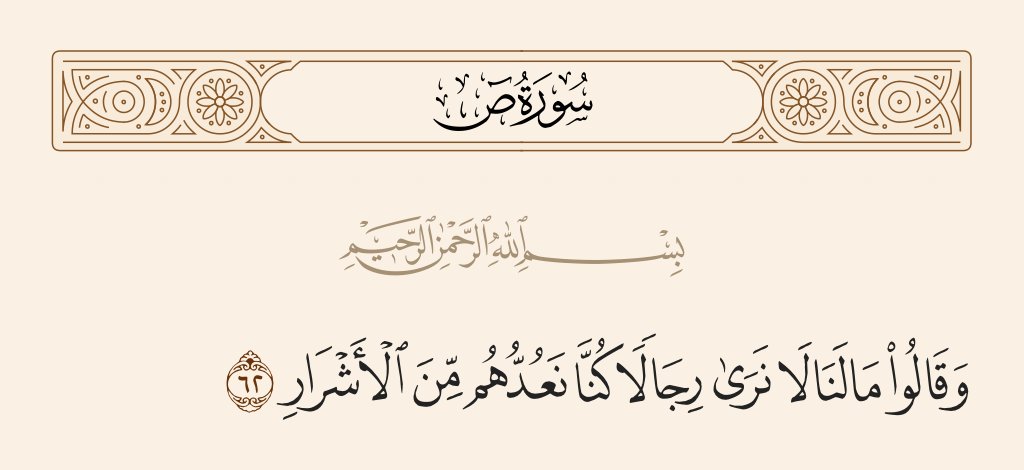 سُورَةُ صٓ
بِسْمِ ٱللَّهِ ٱلرَّحْمَٰنِ ٱلرَّحِيمِ
وَقَالُوا۟ مَا لَنَا لَا نَرَىٰ رِجَالًا كُنَّا نَعُدُّهُم مِّنَ ٱلْأَشْرَارِ ٦٢